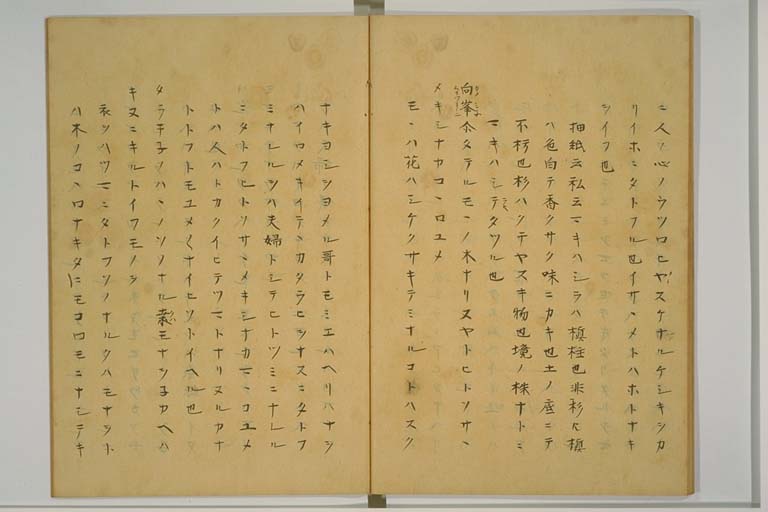 ニ人ノ心ノウツロヒヤスケナルケシキシカ
リイホニタトフル也イサヽメトハホトナキ
シイフ也
押紙云私云マキハシラハ槙柱也非杉尺槙
ハ色白テ香クサク味ニカキ也土ノ座ニテ
不朽也杉ハクテヤスキ物也境ノ株ナトニ
マキハシテタツル也
向峯タテルモヽノ木ナリヌヤトヒトソサヽ
メキシナカコヽロユメ
モヽハ花ハシケクサキテミナルコトハスク
ナキヨシシヨメル哥トモミエハヘリハナシ
ハイロメキイテヽカタラヒシナスニタトフ
ミミナレルシハ夫婦トシテヒトツミニナレル
ニタトフヒトソサヽメキシナカマヽコユメ
トハ人ハトカクイヒテツマトナリヌルカナ
トトフトモユメ〱ナイヒソトイヘル也
タラチ子ノハヽノソノナル桑モナヲ子カヘハ
キヌニキルトイフモノシ
衣ソハツマニタトフソノナルクハモナヲト
ハ木ノコヽロナキタニモコロモニナシテキ